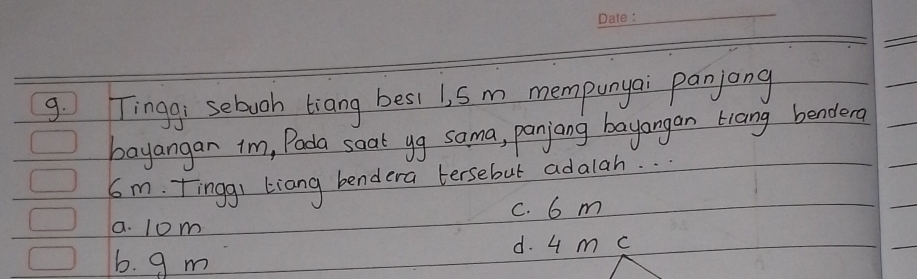 Date :
9. Tinggi sebuah tiang besi 1,5 m mempunyai panjang
bayangan 1m, Pada saat yg sama, panjang bayangan tiang bendera
6 m. Tinggi tiang bendera tersebut adalah ...
a. 10 m c. 6 m
b. 9 m d. 4 m c